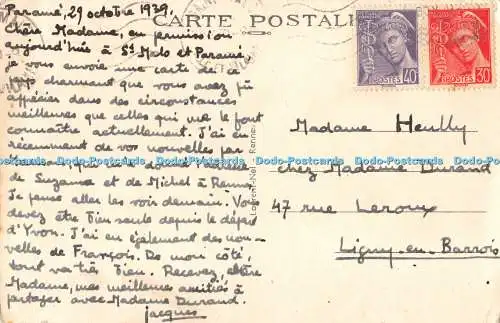 Paramé, 29 octobre 1939.
CARTE POSTALE
Chère Madame, en permission
aujourd'hui à St Malo et Paramé,
je vous envoie une carte de ce
charmant que vous avez pu
apprécier dans des circonstances
meilleures que celles qui vous le font
connaître actuellement. J'ai eu
récemment de vos nouvelles par
qui m'a donné l'adresse
de Suzanne et de Michel à Rennes.
Je pense aller les voir demain. Vous
devez être bien seule depuis le départ
d'Yvon. J'ai eu également des nou-
velles de François. De mon côté,
tout va très bien. Recevez, chère
Madame, mes meilleures amitiés à
partager avec Madame Durand.
Jacques
POSTES 40c
POSTES 30c
Madame Heully
chez Madame Durand
47 rue Leroux
Ligny-en-Barrois
Laurent-Nel, Rennes
Dodo-Postcards Dodo-Postcards Dodo-Postcards Dodo-Postcards Dodo-Postcards